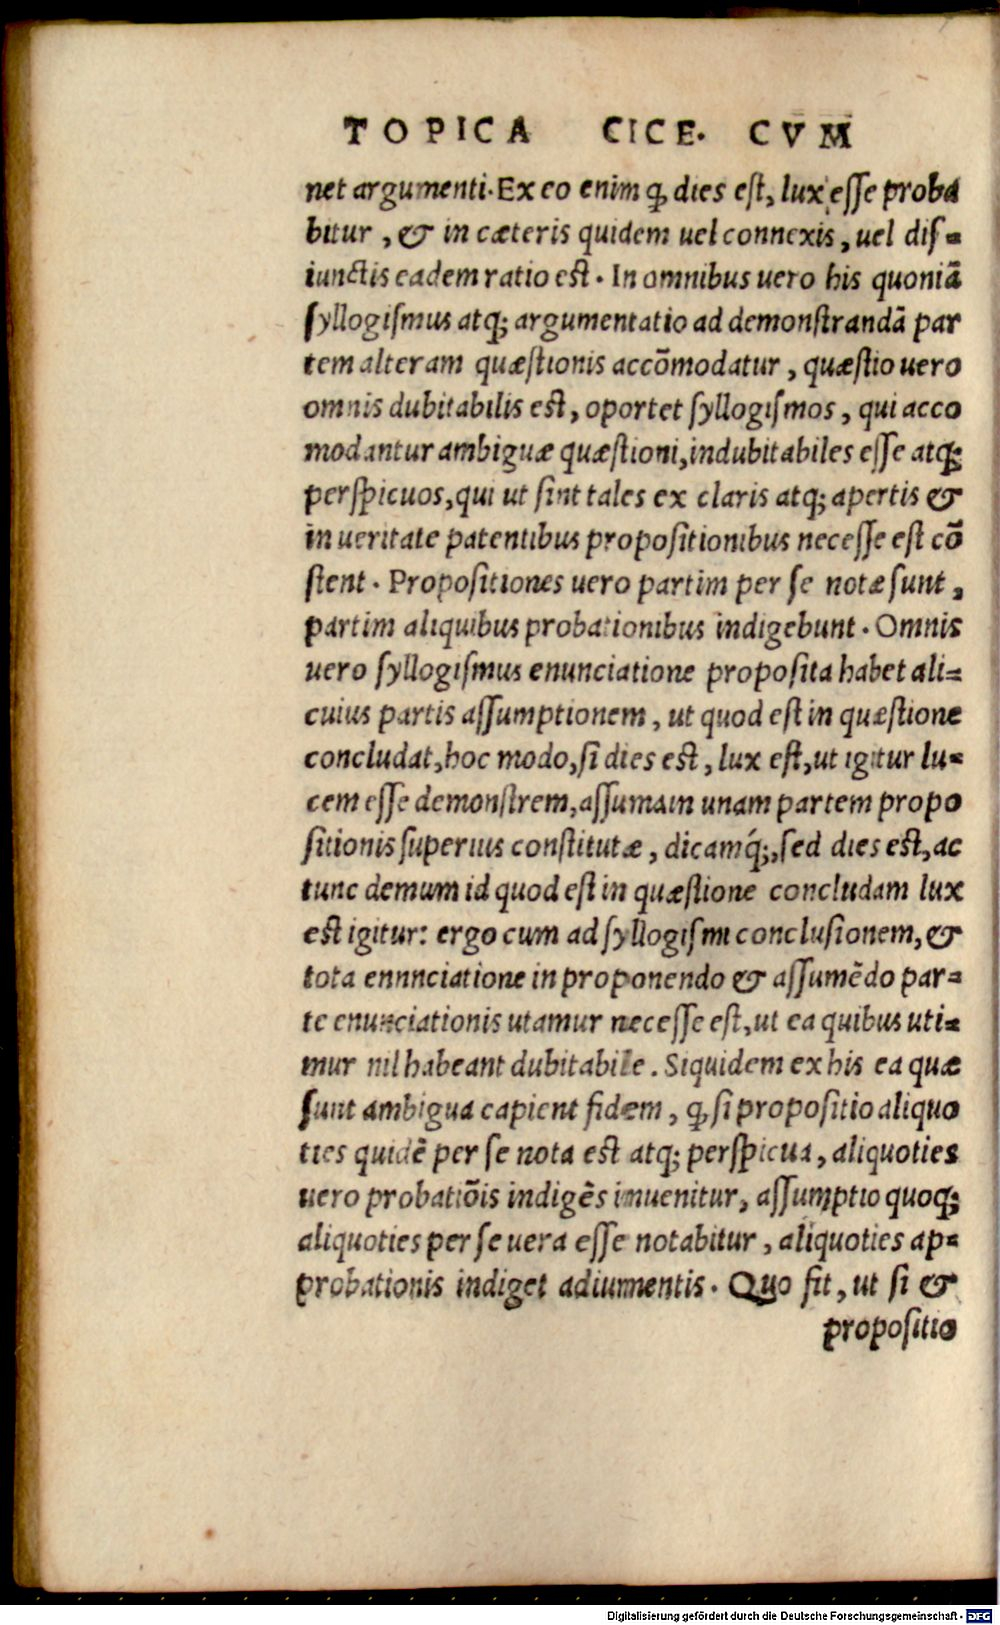 TOPICA CICE. CVM
net argumenti. Ex eo enim ꝙ dies est, lux esse proba
bitur, & in cæteris quidem uel connexis, uel dis=
iunctis eadem ratio est. In omnibus uero his quoniã
syllogismus atq; argumentatio ad demonstrandã par
tem alteram quæstionis accõmodatur, quæstio uero
omnis dubitabilis est, oportet syllogismos, qui acco
modantur ambiguæ quæstioni, indubitabiles esse atq;
perspicuos, qui ut sint tales ex claris atq; apertis &
in ueritate patentibus propositionibus necesse est cõ
stent. Propositiones uero partim per se notæ sunt,
partim aliquibus probationibus indigebunt. Omnis
uero syllogismus enunciatione proposita habet ali=
cuius partis assumptionem, ut quod est in quæstione
concludat, hoc modo, si dies est, lux est, ut igitur lu=
cem esse demonstrem, assumam unam partem propo
sitionis superius constitutæ, dicamq́;, sed dies est, ac
tunc demum id quod est in quæstione concludam lux
est igitur: ergo cum ad syllogismi conclusionem, &
tota ennnciatione in proponendo & assumẽdo par=
te enunciationis utamur necesse est, ut ea quibus uti=
mur nil habeant dubitabile. Siquidem ex his ea quæ
sunt ambigua capient fidem, ꝙ si propositio aliquo
ties quidẽ per se nota est atq; perspicua, aliquoties
uero probatiõis indigẽs inuenitur, assumptio quoq;
aliquoties per se uera esse notabitur, aliquoties ap=
probationis indiget adiumentis. Quo fit, ut si &
propositio
Digitalisierung gefördert durch die Deutsche Forschungsgemeinschaft - DFG